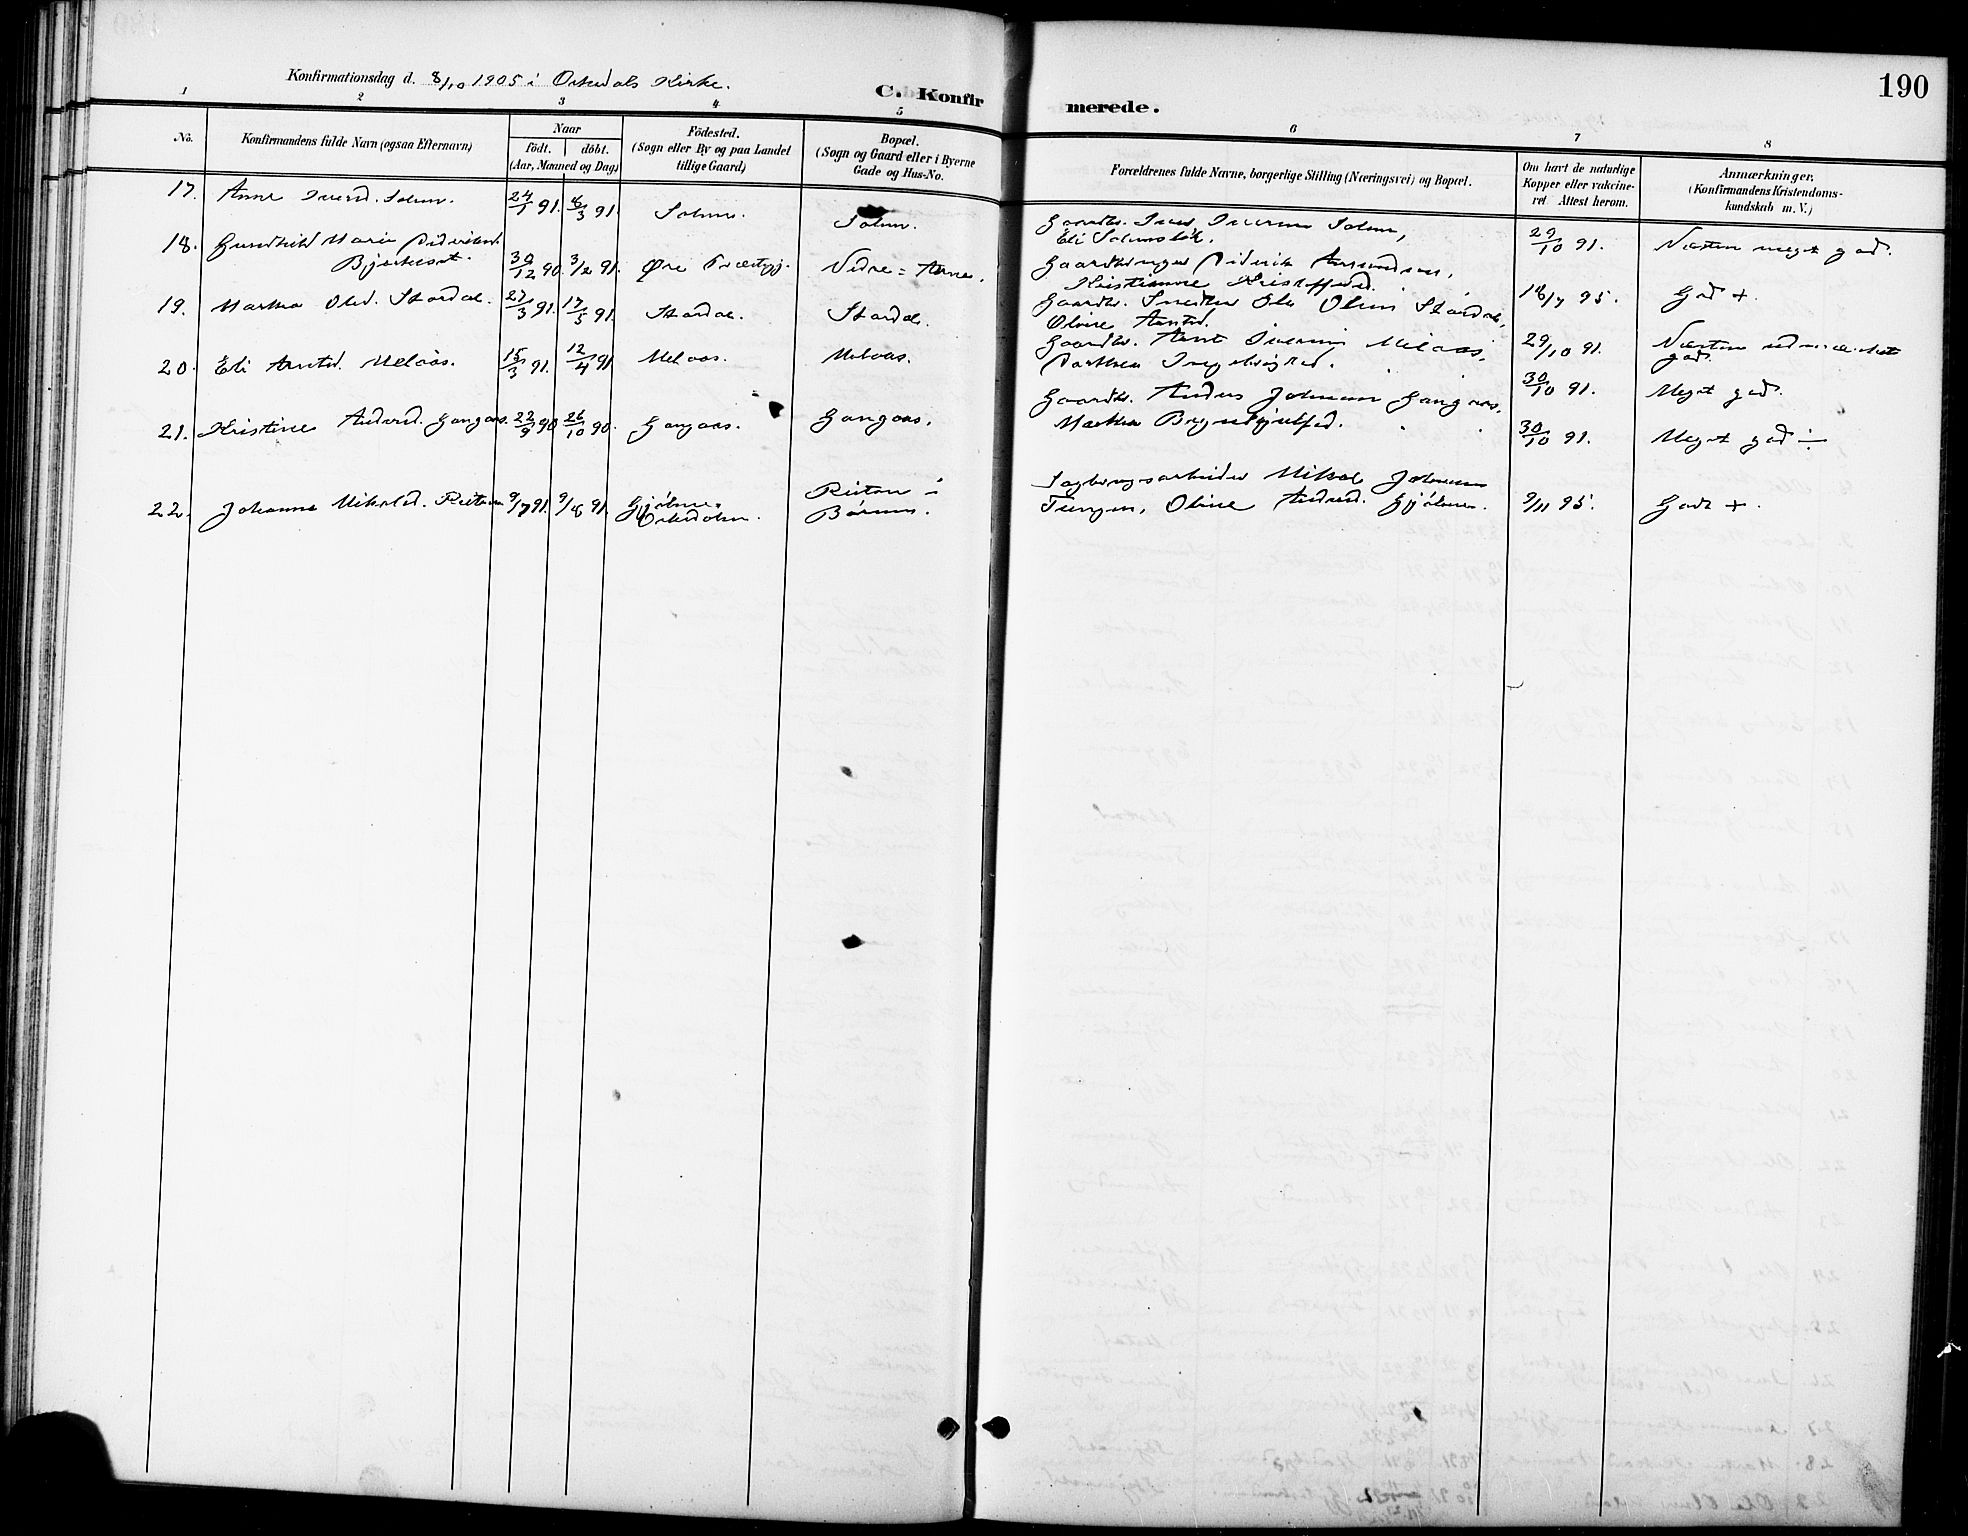 190
Konfirmationsdag d. 8/10 1905 i Orkedals Kirke.
C. Konfirmerede.
1 2 3 4 5 6 7 8
No.
Konfirmandens fulde Navn (ogsaa Efternavn)
Naar
födt. döbt.
(Aar, Maaned og Dag)
Födested.
(Sogn eller By og paa Landet
tillige Gaard)
Bopæl.
(Sogn og Gaard eller i Byerne
Gade og Hus-No.
Forældrenes fulde Navne, borgerlige Stilling (Næringsvei) og Bopæl.
Om havt de naturlige
Kopper eller vakcine-
ret. Attest herom.
Anmærkninger.
(Konfirmandens Kristendoms-
kundskab m. V.)
17. Anne Iversd. Solum. 24/1 91. 6/3 91. Solum. Solum.
Gaardbr. Iver Iversen Solum,
Eli 29/10 91. Næsten meget god.
18. Gunhild Marie Dideriksd.
Bjerkeset. 30/12 90. 3/2 91. Øre Nedre = Aarne.
Gaardbruger Diderik Amundsen,
Kristianne Kristoffersd. 18/7 95. God +.
19. Marthea Olsd. Stordal. 27/3 91. 17/5 91. Stordal. Stordal.
Gaardbr. Smedker Ole Olsen Stordal,
Oline Arntsd. 29/10 91. Næsten udmærket
god.
20. Eli Arntsd. Melaas. 15/3 91. 12/4 91 Melaas. Melaas.
Gaardbr. Arnt Iversen Melaas,
Dorthea Ingebrigtsd. 30/10 91. Meget god.
21. Kristine Andersd. Gangaas. 22/9 90 26/10 90. Gangaas. Gangaas.
Gaardbr. Anders Johnsen Gangaas,
Marthea Brynhjulfsd. 30/10 91. Meget god ÷
22. Johanna Mikalsd. Reitan 9/7 91. 9/8 91. Gjölme,
Orkedalen. Reitan i
Børsen.
Sagbrugsarbeider Mikal Johnsen
Tungen, Oline Andersd. Gjölme. 9/11 95. Godt +.